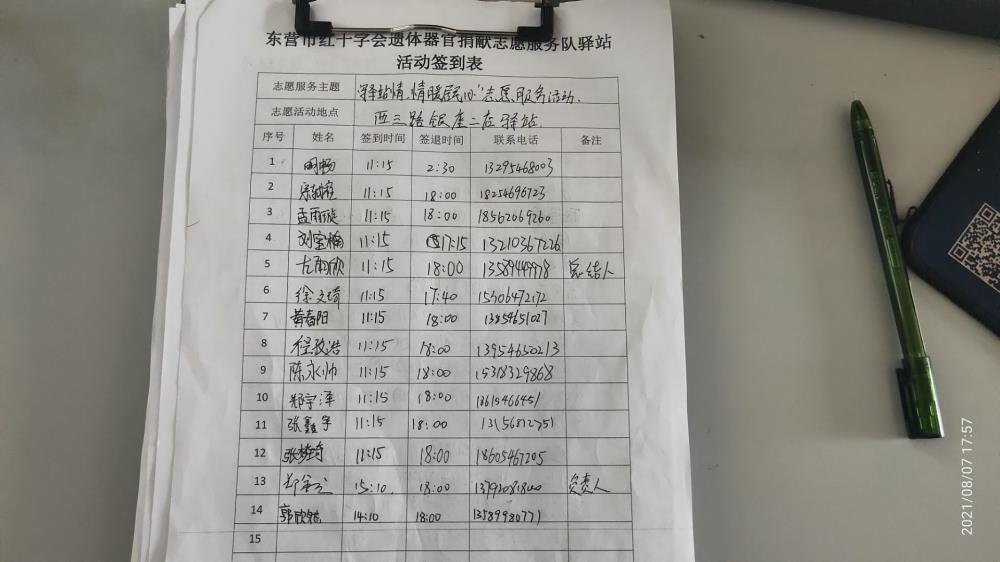 东营市红十字会遗体器官捐献志愿服务队驿站
活动签到表
志愿服务主题 驿站情,情暖民心"志愿服务活动.
志愿活动地点 西三路银座二店驿站
序号 姓名 签到时间 签退时间 联系电话 备注
1 11:15 2:30 13295468003
2 11:15 18:00 18254696723
3 孟雨旋 11:15 18:00 18562069260
4 刘宝楠 11:15 17:15 13210367226
5 左雨欣 11:15 18:00 13589449978 总结人
6 徐文琦 11:15 17:40 15306472172
7 黄春阳 11:15 18:00
8 程政浩 11:15 18:00 13954650213
9 陈永帅 11:15 18:00 15318329868
10 郑宇泽 11:15 18:00
11 张鑫宇 11:15 18:00
12 张梦琦 11:15 18:00 18605467205
13 15:10. 18:00 负责人
14 14:10 18:00 13589980771
15
2021/08/07 17:57